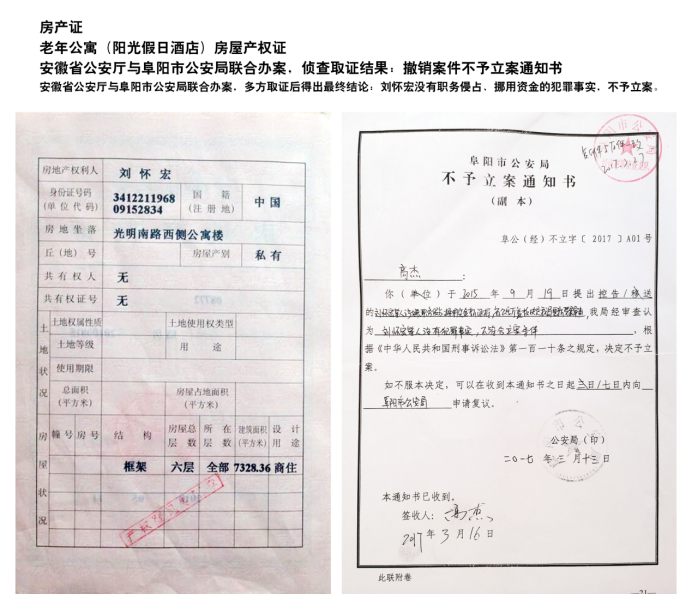 房产证
老年公寓（阳光假日酒店）房屋产权证
安徽省公安厅与阜阳市公安局联合办案，侦查取证结果：撤销案件不予立案通知书
安徽省公安厅与阜阳市公安局联合办案，多方取证后得出最终结论：刘怀宏没有职务侵占、挪用资金的犯罪事实，不予立案。
房地产权利人 刘怀宏
身份证号码 3412211968 国籍 中国
（单位代码） 09152834 （注册地）
房地坐落 光明南路西侧公寓楼
丘（地）号 房屋产别 私有
共有权人 无
共有权证号 无
土地状况 土地权属性质 土地使用权类型
土地等级 用途
使用期限
总面积 房屋占地面积
（平方米） （平方米）
房屋状况 幢号 房号 结构 房屋总层数 所在层数 建筑面积（平方米） 设计用途
框架 六层 全部 7328.36 商住
阜阳市公安局
不予立案通知书
（副本）
阜公（经）不立字〔2017〕A01号
高杰
你（单位）于2015年9月19日提出控告/移送
的 我局经审查认
为刘怀宏等人没有犯罪事实，不符合立案条件，根
据《中华人民共和国刑事诉讼法》第一百一十条之规定，决定不予立
案。
如不服本决定，可以在收到本通知书之日起三日/七日内向
阜阳市公安局 申请复议。
公安局（印）
二〇一七年三月十三日
本通知书已收到。
签收人：高杰
2017年3月16日
此联附卷
—21—